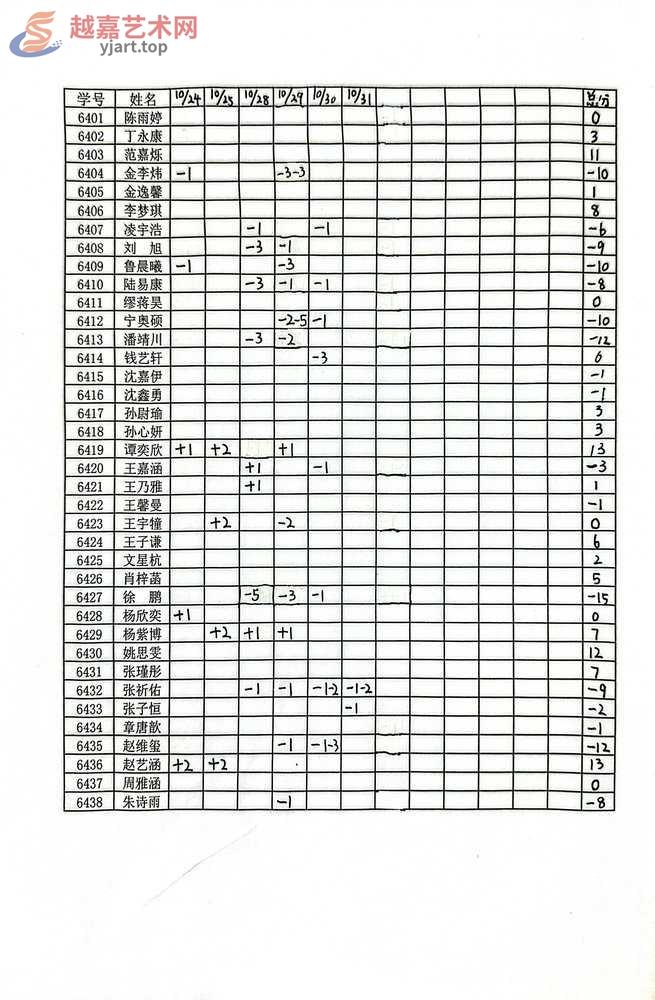 越嘉艺术网
yjart.top
学号 姓名 10/24 10/25 10/28 10/29 10/30 10/31 总分
6401 陈雨婷 0
6402 丁永康 3
6403 范嘉烁 11
6404 金李炜 -1 -3-3 -10
6405 金逸馨 1
6406 李梦琪 8
6407 凌宇浩 -1 -1 -6
6408 刘 旭 -3 -1 -9
6409 鲁晨曦 -1 -3 -10
6410 陆易康 -3 -1 -1 -8
6411 缪蒋昊 0
6412 宁奥硕 -2-5 -1 -10
6413 潘靖川 -3 -2 -12
6414 钱艺轩 -3 0
6415 沈嘉伊 -1
6416 沈鑫勇 -1
6417 孙尉瑜 3
6418 孙心妍 3
6419 谭奕欣 +1 +2 +1 13
6420 王嘉涵 +1 -1 -3
6421 王乃雅 +1 1
6422 王馨曼 -1
6423 王宇犝 +2 -2 0
6424 王子谦 6
6425 文星杭 2
6426 肖梓菡 5
6427 徐 鹏 -5 -3 -1 -15
6428 杨欣奕 +1 0
6429 杨紫博 +2 +1 +1 7
6430 姚思雯 12
6431 张瑾彤 7
6432 张祈佑 -1 -1 -1-2 -1-2 -9
6433 张子恒 -1 -2
6434 章唐歆 -1
6435 赵维玺 -1 -1-3 -12
6436 赵艺涵 +2 +2 13
6437 周雅涵 0
6438 朱诗雨 -1 -8